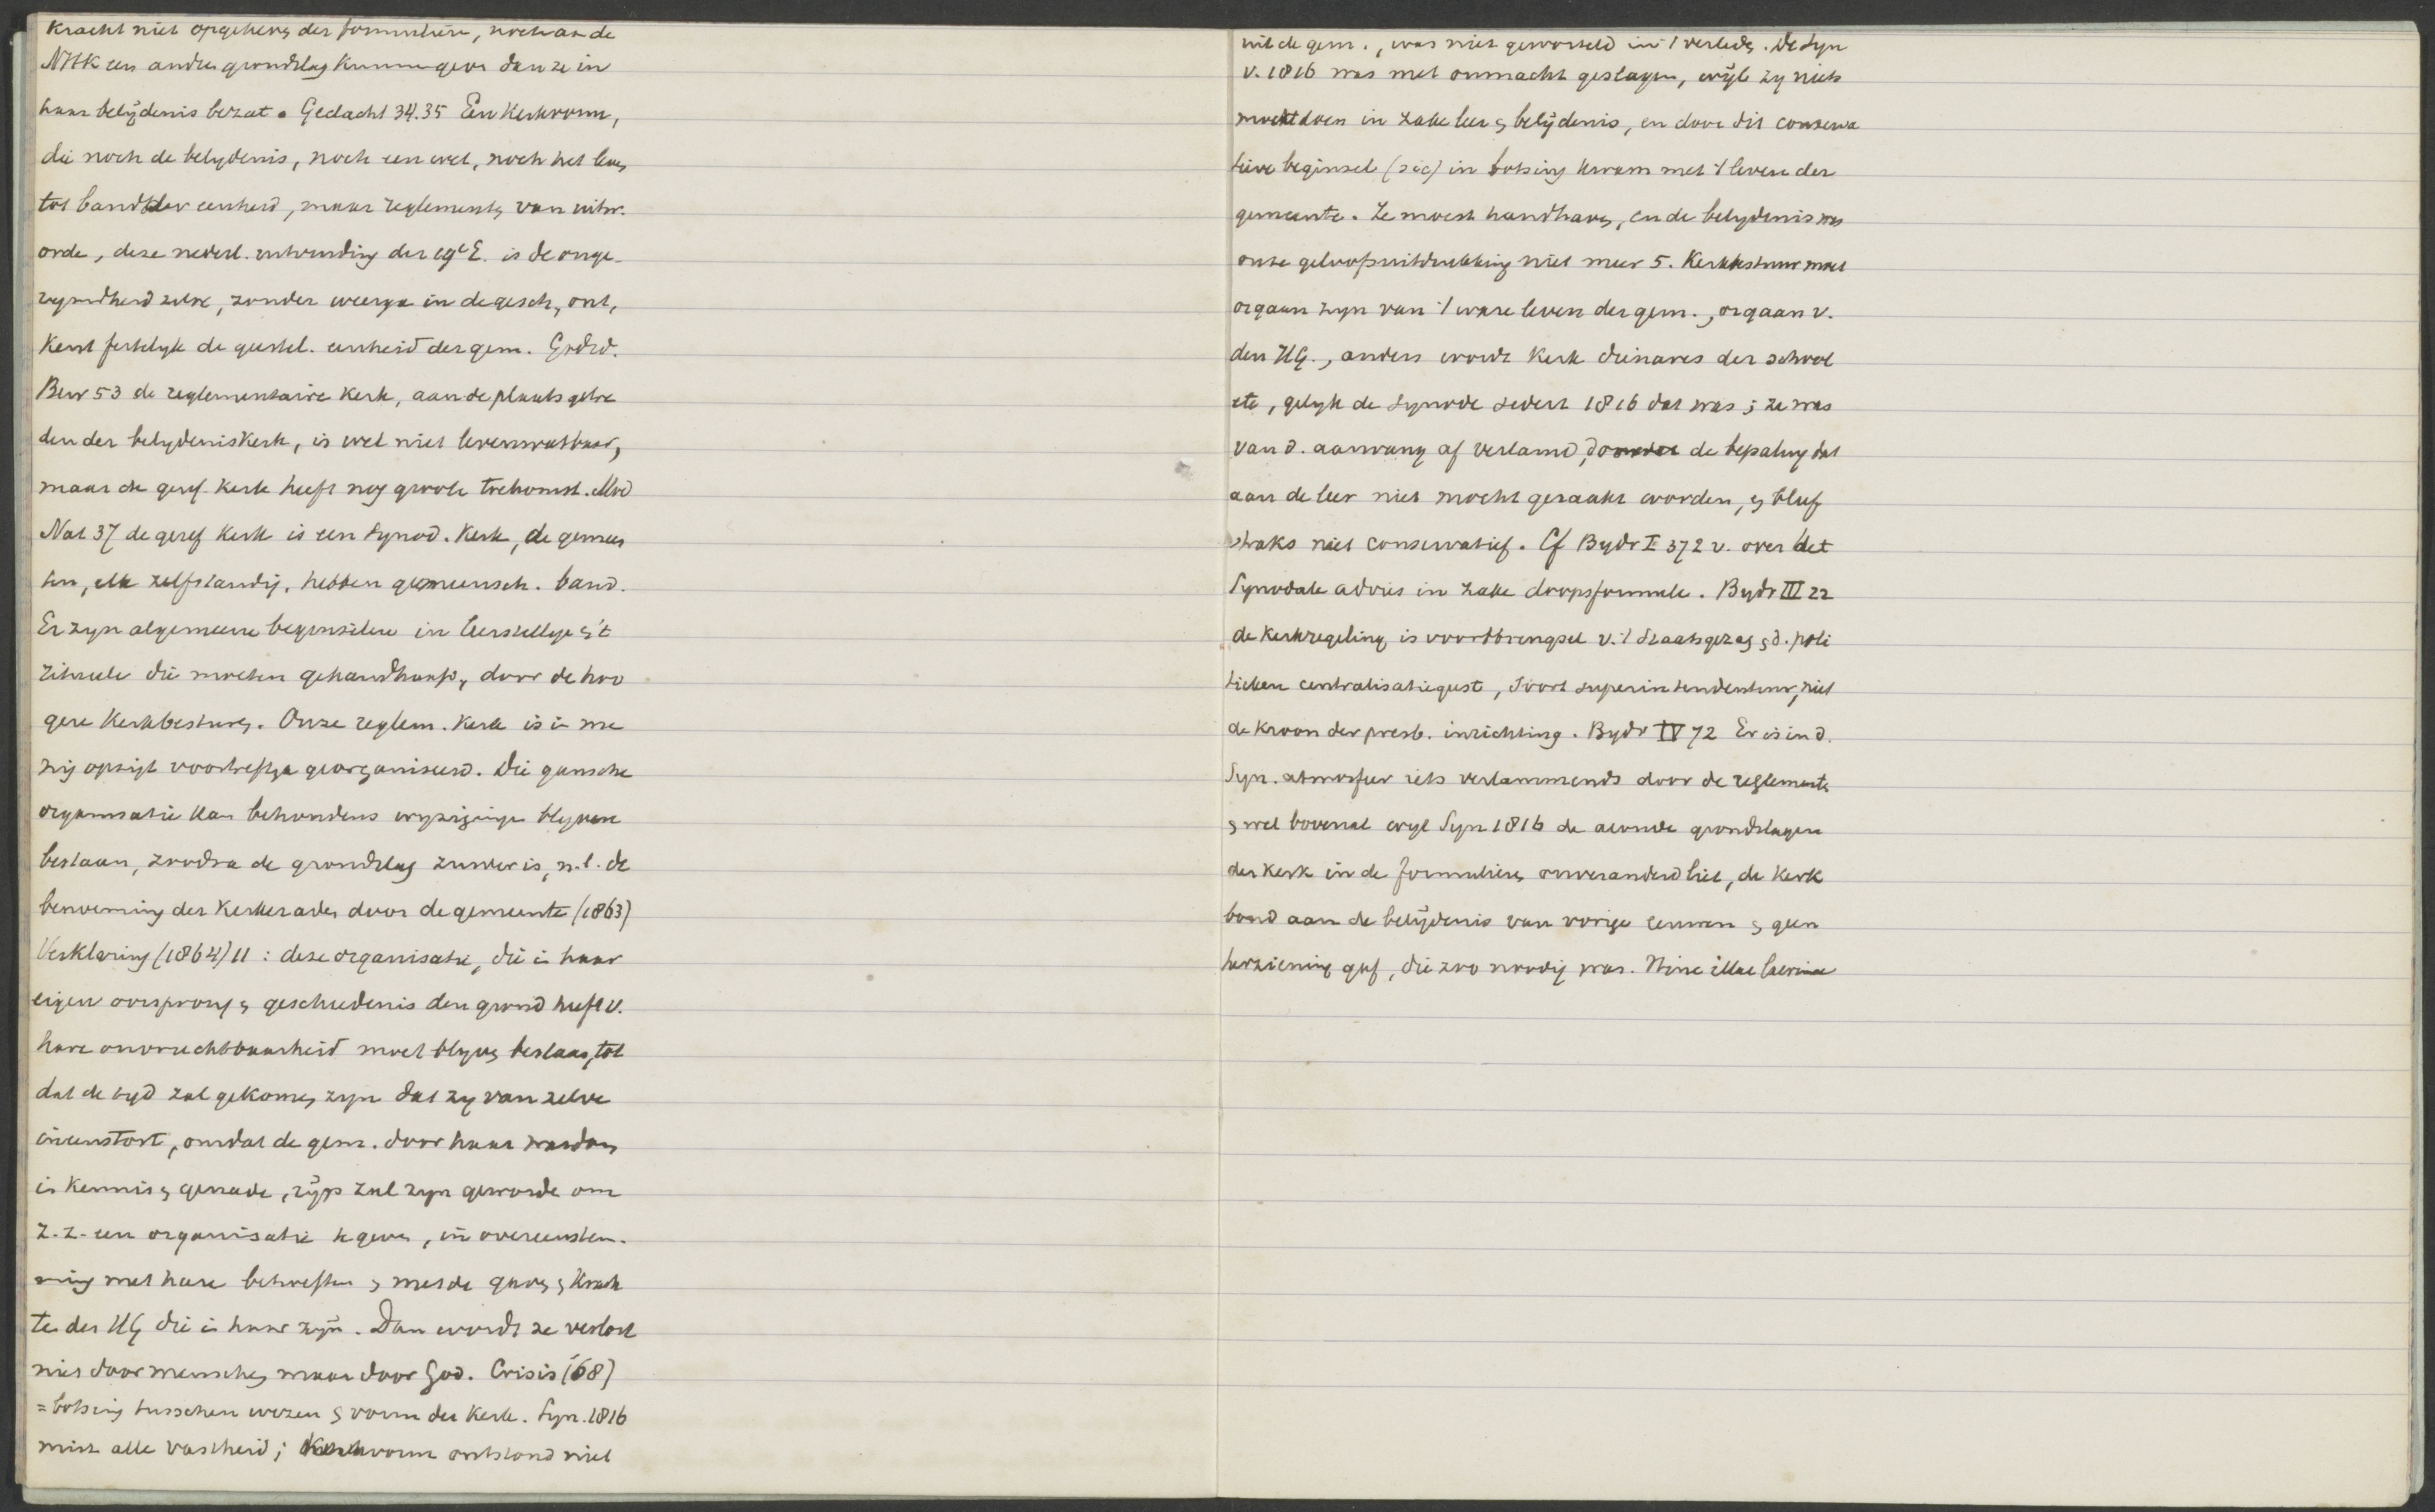 kracht niet opgeheven der formulieren, noch aan de
NHK een andren grondslag kunnen geven dan ze in
haar belijdenis bezat. Gedacht 34.35 Een Kerkvorm,
die noch de belydenis, noch een wet, noch het leven
tot band der eenheid, maar reglementen van uitw.
orde, deze nederl. uitvinding der 19e E. is de onge-
rymdheid zelve, zonder weerga in de gesch, ont,
kent feitelyk de geestel. eenheid der gem. Godsd.
Bew 53 de reglementaire kerk, aan de plaats getre
den der belydeniskerk, is wel niet levensvatbaar,
maar de geref. kerk heeft nog groote toekomst. Mod
Nat 37 de geref kerk is een synod. kerk, de gemeen
ten, elk zelfstandig, hebben gemeensch. band.
Er zyn algemeene beginselen in leerstellige en 't
ritueele die moeten gehandhaafd, door de hoo
gere kerkbesturen. Onze reglem. kerk is in me
nig opzigt voortreflyk georganiseerd. Die gansche
organisatie kan behoudens wyzigingen blyven
bestaan, zoodra de grondslag zuiver is, n.l. de
benoeming der kerkeraden door de gemeente (1863)
Verklaring (1864) 11: deze organisatie, die in haar
eigen oorsprong en geschiedenis den grond heeft v.
hare onvruchtbaarheid moet blyven bestaan, tot
dat de tyd zal gekomen zyn dat zy van zelve
ineenstort, omdat de gem. door haar wasdom
in kennis en genade, rijp zal zyn geworden om
z.z. een organisatie te geven, in overeenstem.
ming met hare behoeften en met de gaven en krach
ten des HG die in haar zijn. Dan wordt ze verlost
niet door menschen maar door God. Crisis ('68)
= botsing tusschen wezen en vorm der kerk. Syn. 1816
mist alle vastheid; kerkvorm ontstond niet
uit de gem., was niet geworteld in 't verleden. De Syn
v. 1816 was met onmacht geslagen, wijl zy niets
mocht doen in zake leer en belijdenis, en door dit conserva
tieve beginsel (sic) in botsing kwam met 't leven der
gemeente. Ze moest handhaven, en de belydenis was
onze geloofsuitdrukking niet meer 5. Kerkbestuur moet
orgaan zyn van 't ware leven der gem., orgaan v.
den HG., anders wordt kerk dienares der school
etc, gelyk de synode sedert 1816 dat was; ze was
van d. aanvang af verlamd, door de bepaling dat
aan de leer niet mocht geraakt worden, en bleef
straks niet conservatief. Cf Bydr I 372 v. over het
Synodale advies in zake doopsformule. Bydr III 22
de kerkregeling is voortbrengsel v. 't Staatsgezag en d. poli
tieken centralisatiegeest, soort superintendentuur, niet
de kroon der presb. inrichting. Bydr IV 72 Er is in d.
Syn. atmosfeer iets verlammends door de reglementen
en wel bovenal wyl Syn 1816 de aloude grondslagen
der kerk in de formulieren onveranderd liet, de kerk
bond aan de belijdenis van vorige eeuwen en geen
herziening gaf, die zoo noodig was. Hinc illae lacrimae